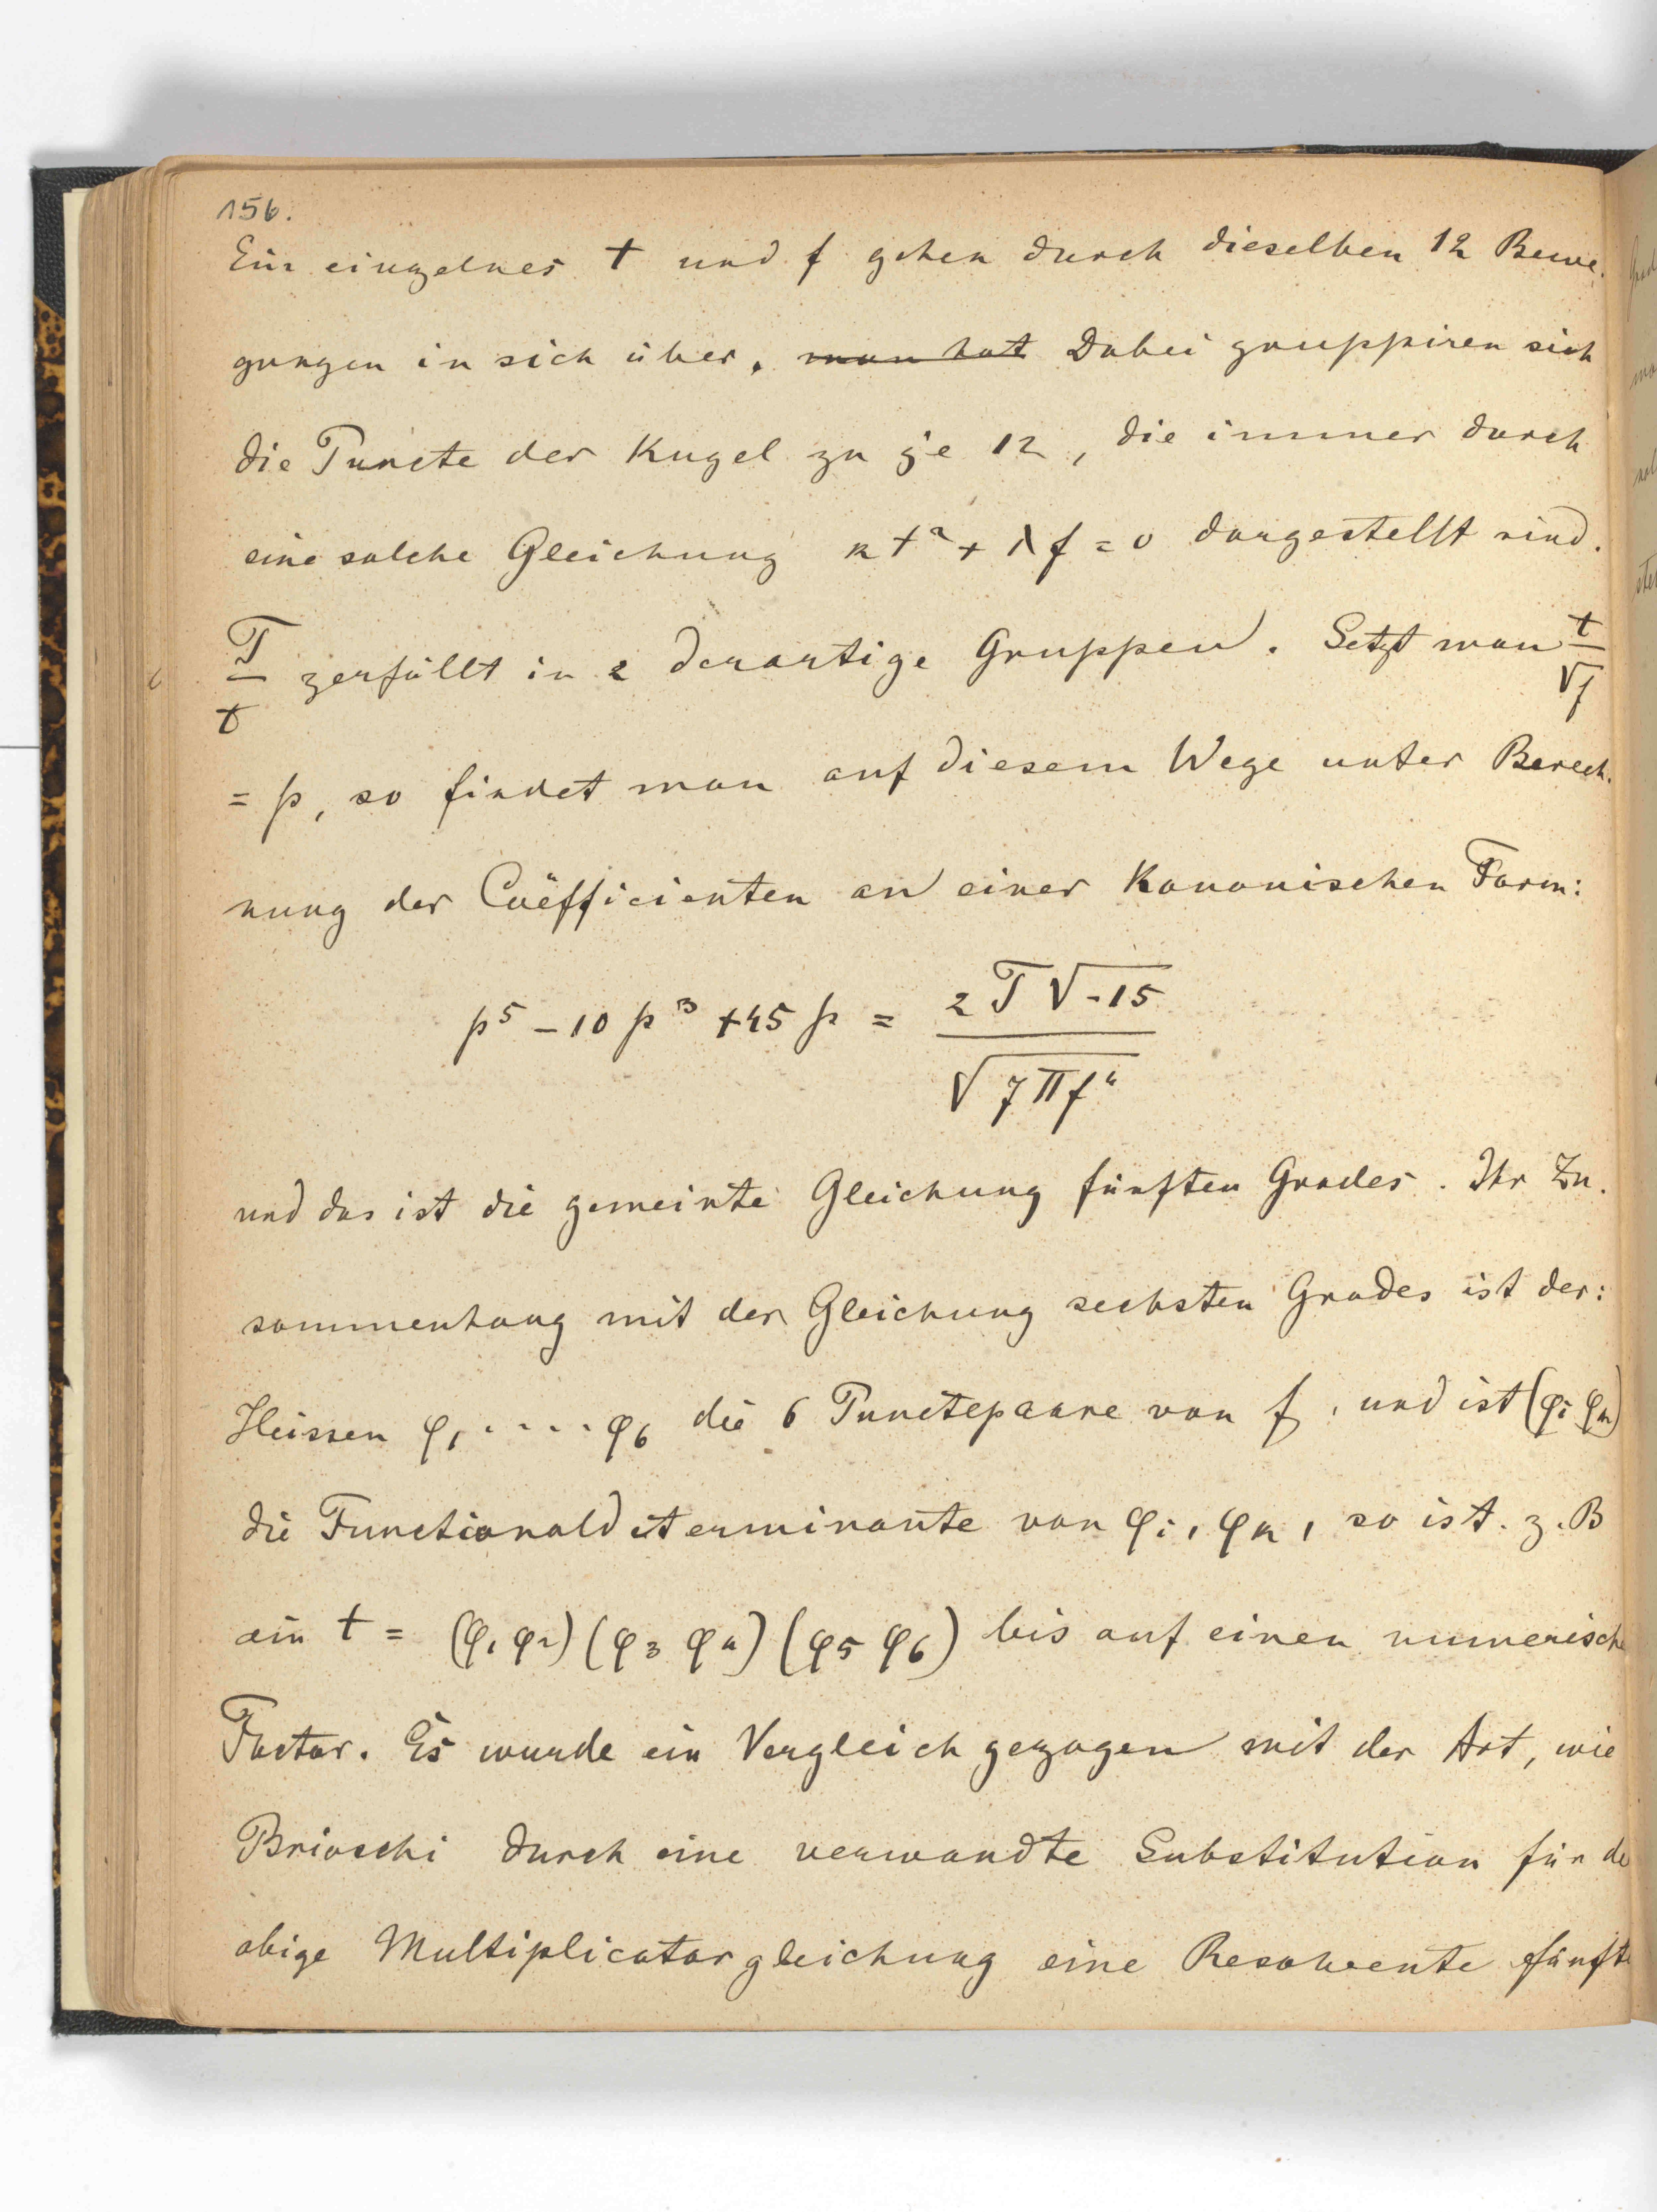 156.
Ein einzelnes t und f gehen durch dieselben 12 Bewe-
gungen in sich über. man hat Dabei gruppiren sich
die Puncte der Kugel zu je 12, die immer durch
eine solche Gleichung κt² + λf = 0 dargestellt sind.
T/t zerfällt in 2 derartige Gruppen. Setzt man t/√f
= p, so findet man auf diesem Wege unter Berech-
nung der Coëfficienten an einer Kanonischen Form:
p⁵ - 10p³ + 45p = 2T√-15 / √7πf⁴
und das ist die gemeinte Gleichung fünften Grades. Ihr Zu-
sammenhang mit der Gleichung sechsten Grades ist der:
Heissen φ₁ ..... φ₆ die 6 Punctepaare von f, und ist (φi φk)
die Functionaldeterminante von φi, φk, so ist. z.B
ein t = (φ₁ φ₂) (φ₃ φ₄) (φ₅ φ₆) bis auf einen numerische
Factor. Es wurde ein Vergleich gezogen mit der Art, wie
Brioschi durch eine verwandte Substitution für de
obige Multiplicatorgleichung eine Resolvente fünfte